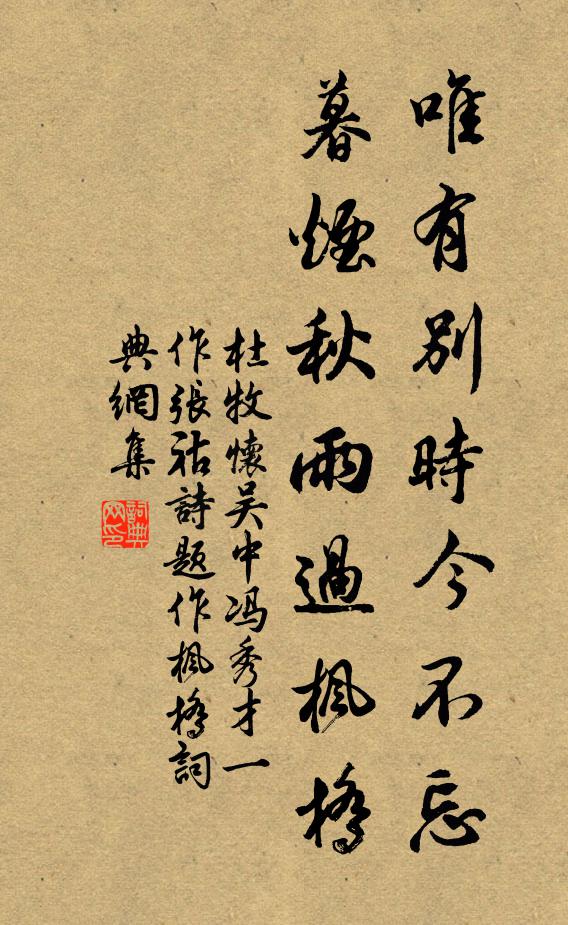 唯有別時今不忘
暮煙秋雨過楓橋
杜牧懷吴中冯秀才一
作張祜詩题作楓橋詞
典網集
詞典網印